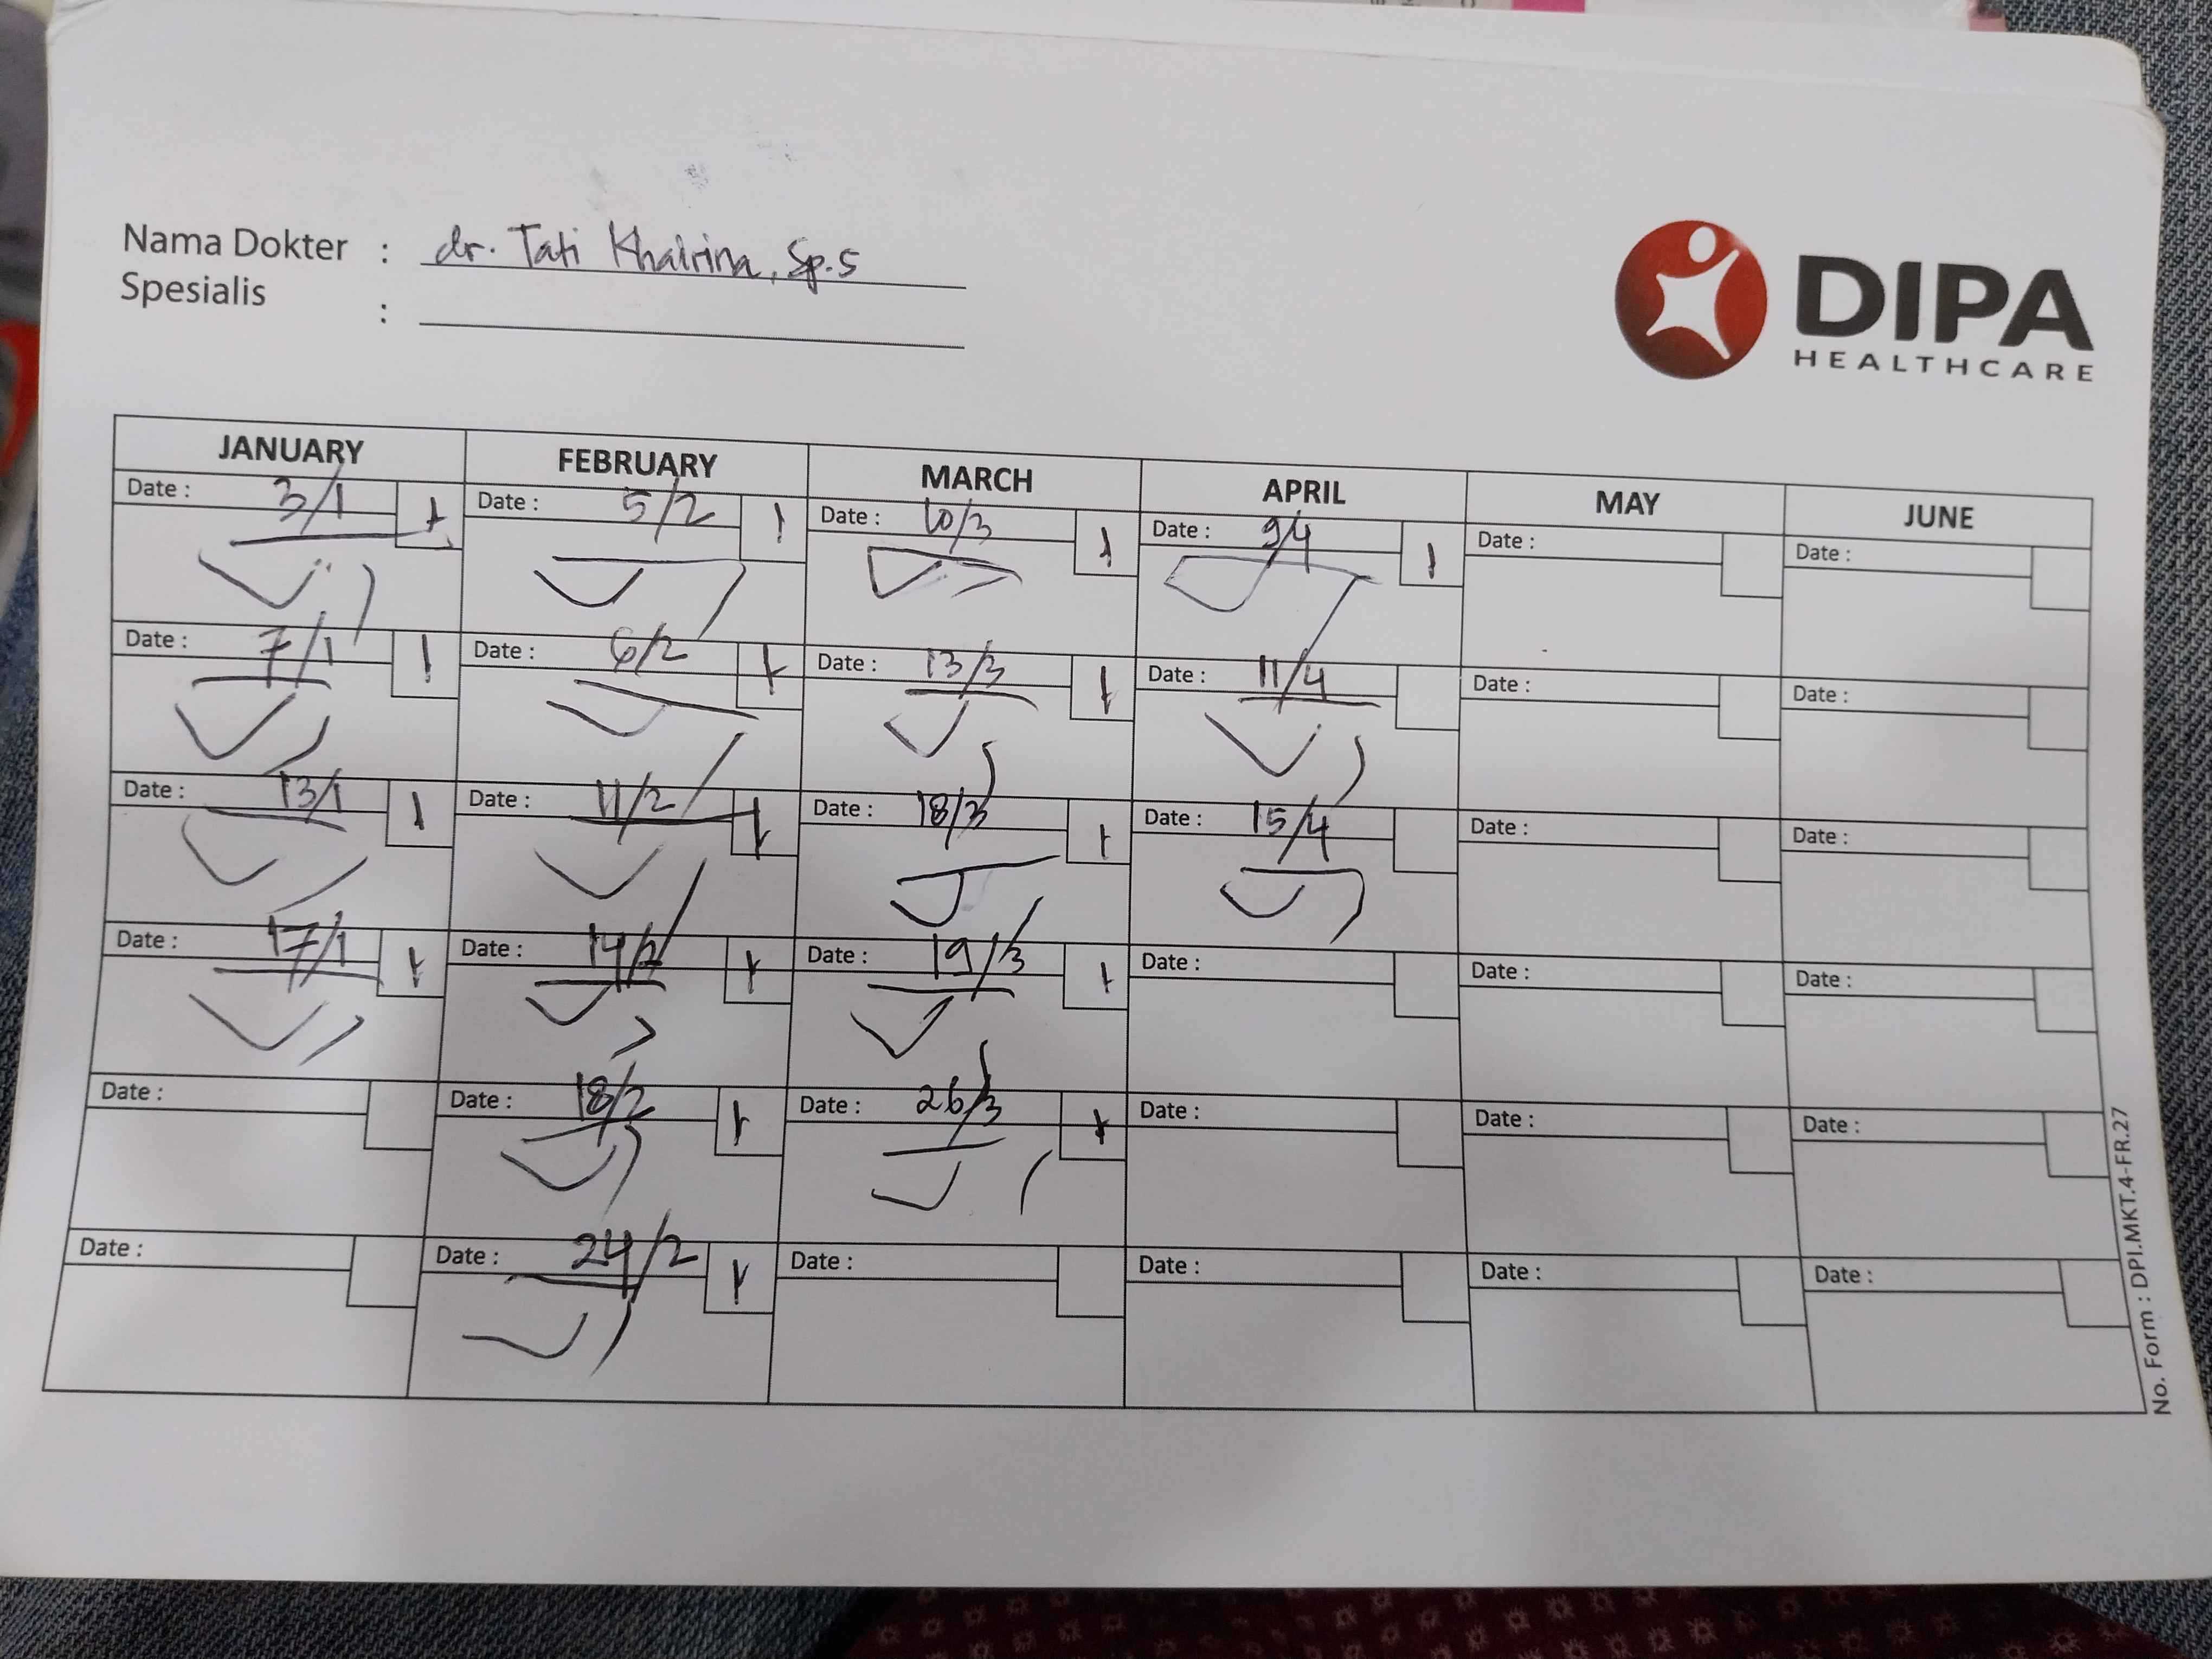 Nama Dokter : dr. Tati Khairina, Sp.S
Spesialis :
DIPA
HEALTHCARE
JANUARY FEBRUARY MARCH APRIL MAY JUNE
Date : 3/1 1 Date : 5/2 1 Date : 10/3 1 Date : 9/4 1 Date : Date :
Date : 7/1 1 Date : 6/2 1 Date : 13/3 1 Date : 11/4 Date : Date :
Date : 13/1 1 Date : 11/2 1 Date : 18/3 1 Date : 15/4 Date : Date :
Date : 17/1 1 Date : 14/2 1 Date : 19/3 1 Date : Date : Date :
Date : Date : 18/2 1 Date : 26/3 1 Date : Date : Date :
Date : Date : 24/2 1 Date : Date : Date : Date :
No. Form : DPI.MKT.4-FR.27